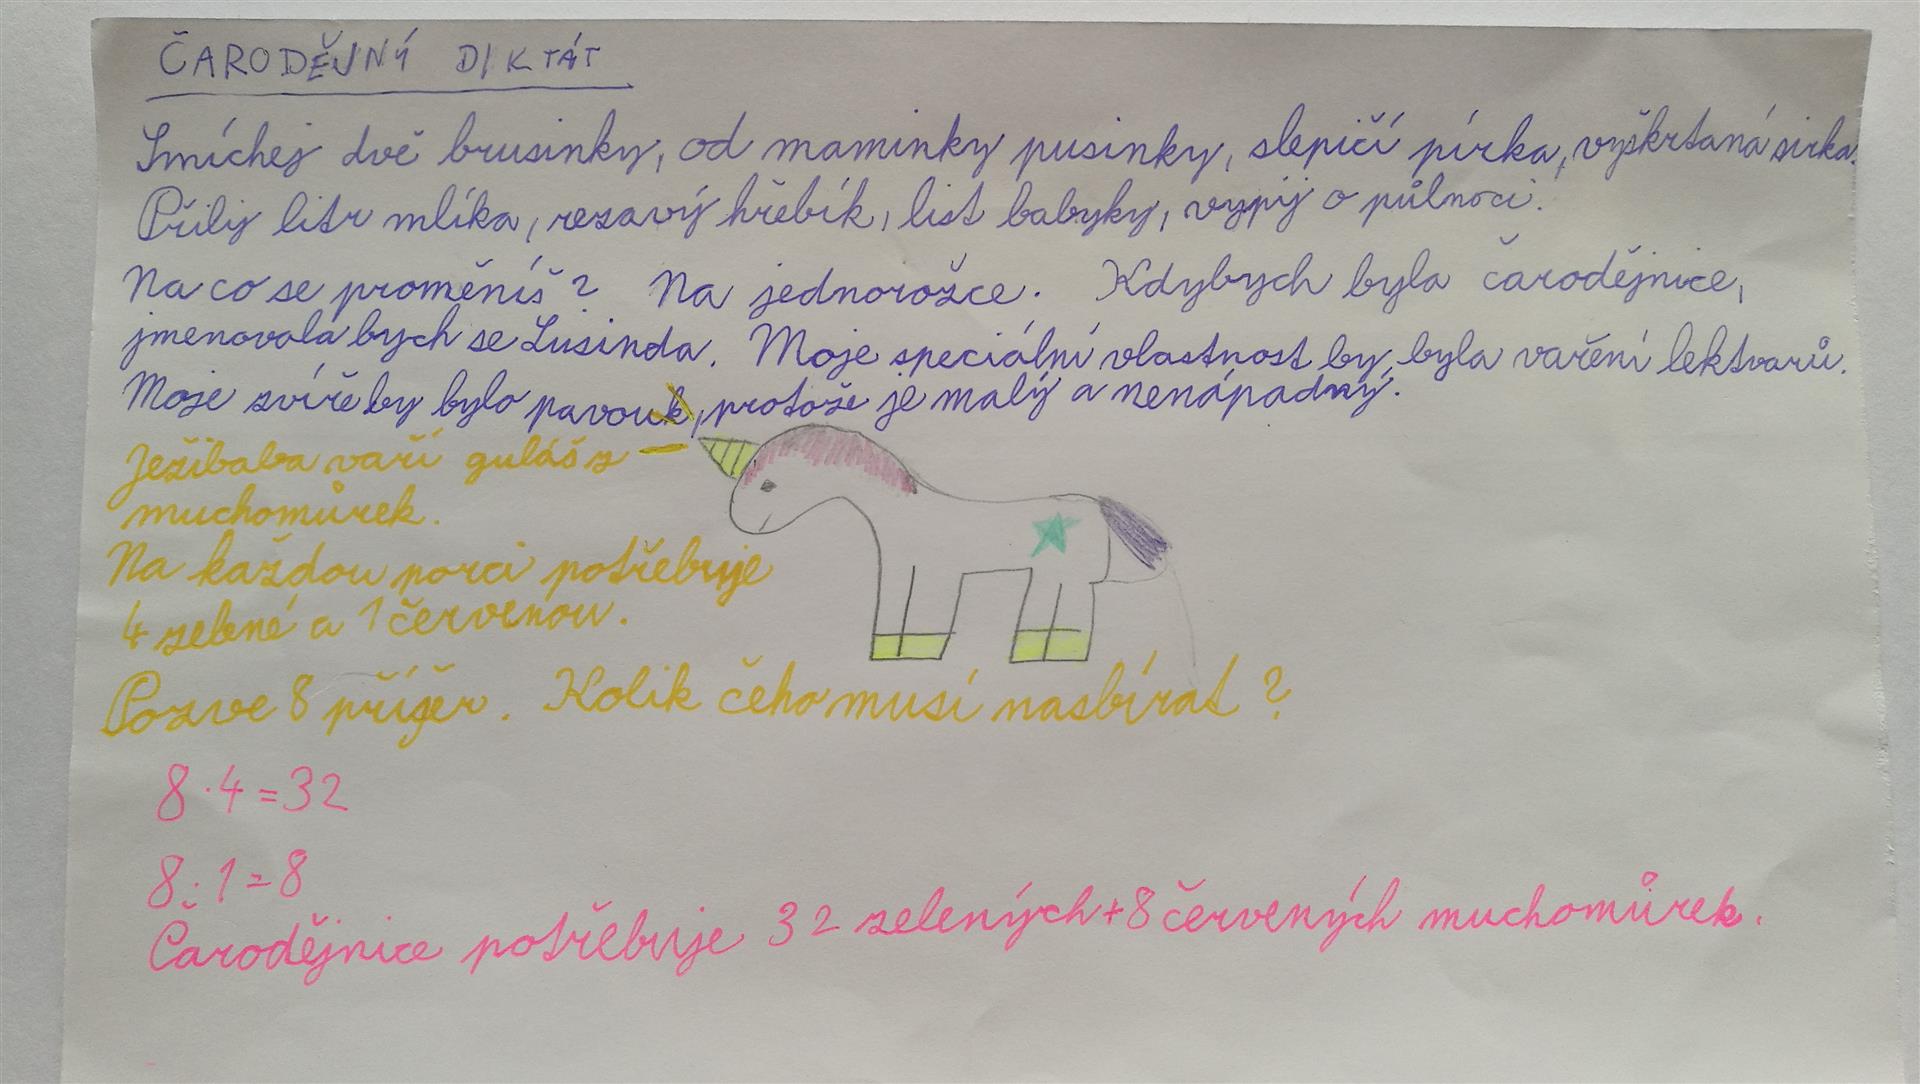 ČARODĚJNÝ DIKTÁT
Smíchej dvě brusinky, od maminky pusinky, slepičí pírka, vyškrtaná sirka.
Přilij litr mlíka, rezavý hřebík, list babyky, vypij o půlnoci.
Na co se proměníš? Na jednorožce. Kdybych byla čarodějnice,
jmenovala bych se Lusinda. Moje speciální vlastnost by byla vaření lektvarů.
Moje zvíře by bylo pavouk, protože je malý a nenápadný.
Ježibaba vaří guláš z
muchomůrek.
Na každou porci potřebuje
4 zelené a 1 červenou.
Pozve 8 příšer. Kolik čeho musí nasbírat?
8·4=32
8:1=8
Čarodějnice potřebuje 32 zelených+8 červených muchomůrek.